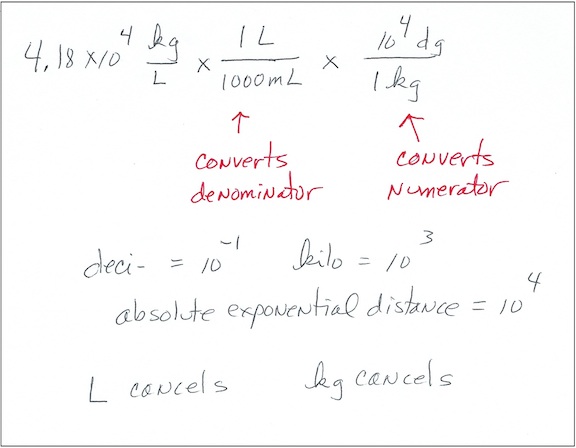 4.18 x 10⁴ kg/L x 1 L/1000 mL x 10⁴ dg/1 kg
↑ ↑
converts converts
denominator numerator
deci- = 10⁻¹ kilo = 10³
absolute exponential distance = 10⁴
L cancels kg cancels